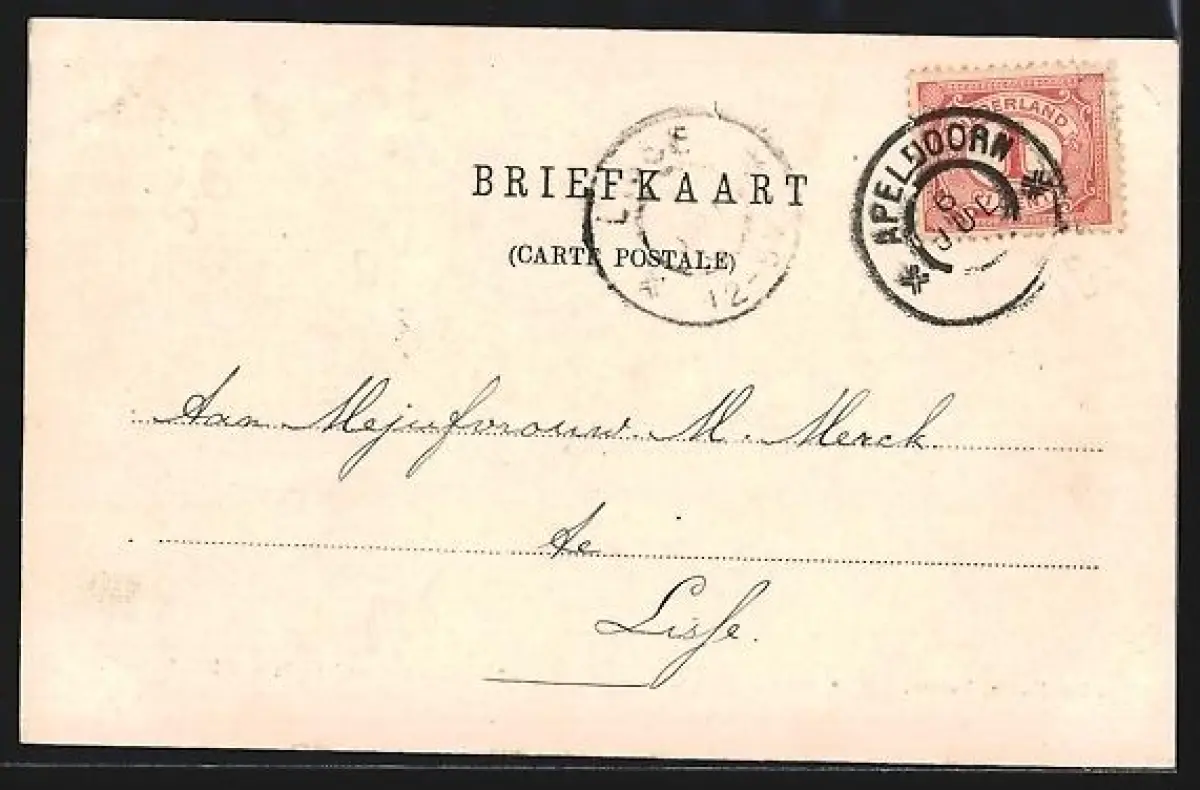 BRIEFKAART
(CARTE POSTALE)
LISSE
12-
APELDOORN
6 JUL
NEDERLAND
1
Aan Mejufvrouw M. Merck
te
Lisse.